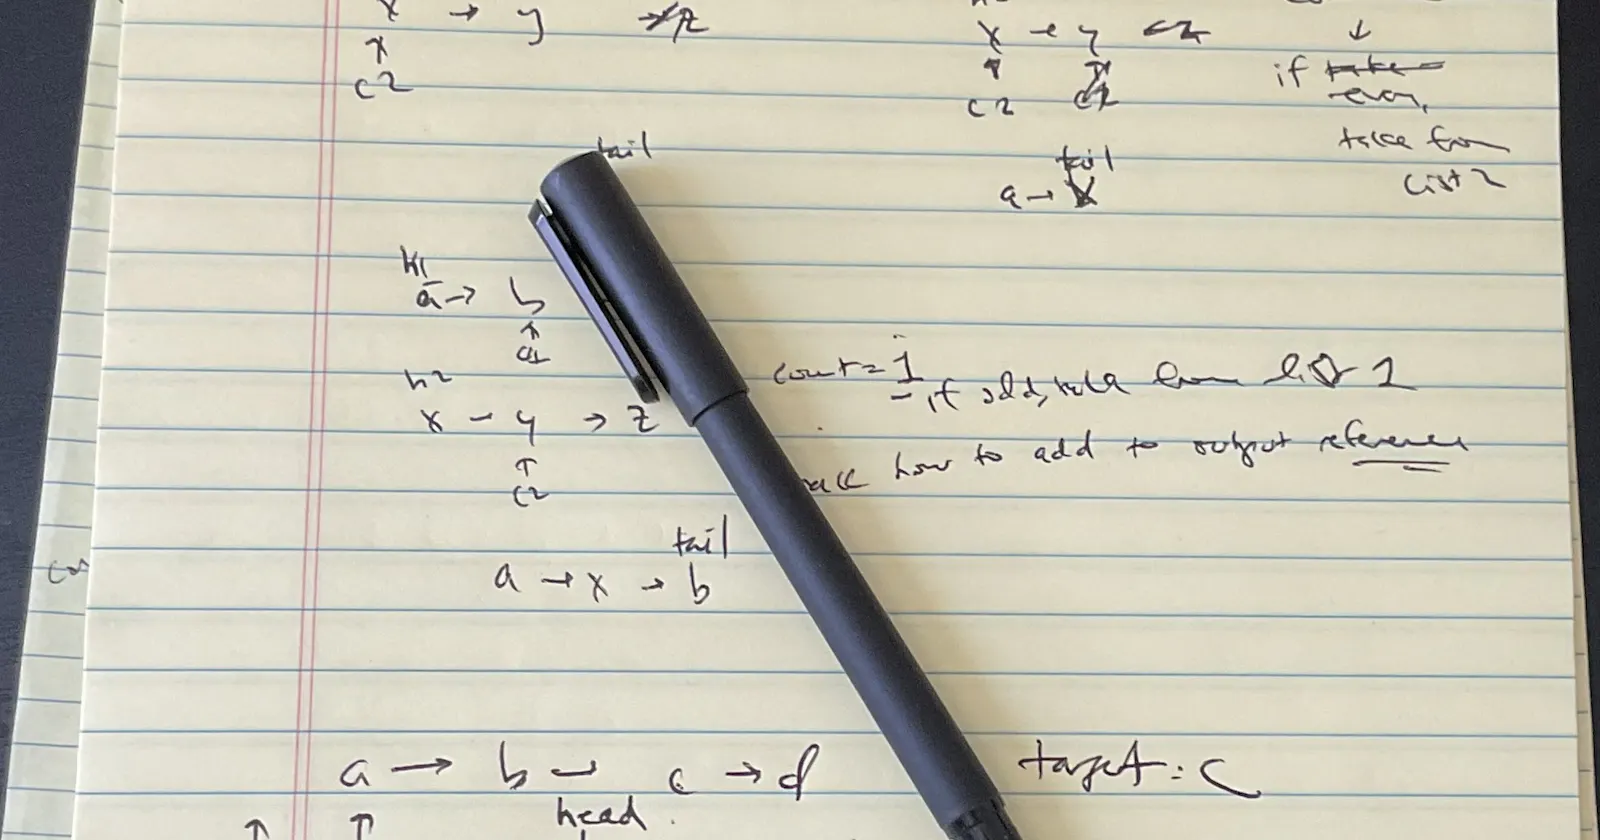 x → y → z
x → y
c2
if even,
c2
take from
tail
tail
list 2
a →
h1
a → b
↑
c1
count = 1
- if odd, take from list 1
h2
x - y → z
how to add to output reference
↑
c2
tail
a → x → b
a → b → c → d
target: c
head
↑ ↑